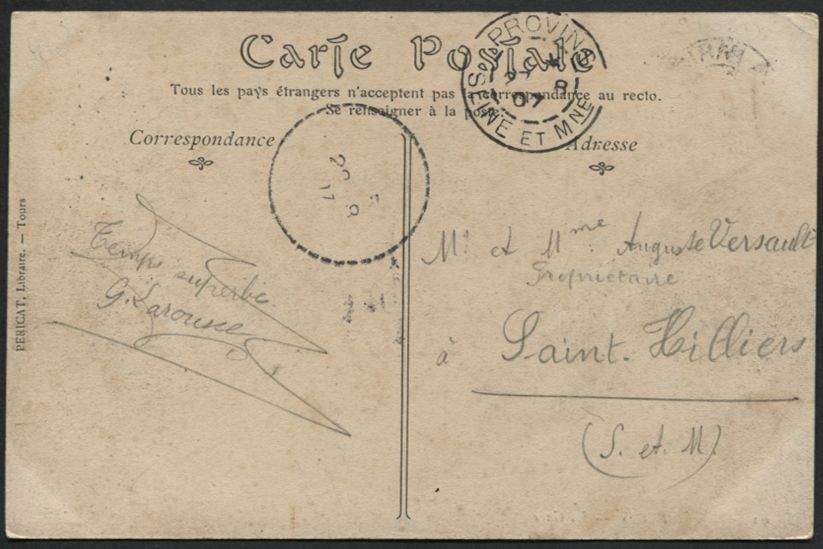 Carte Postale
Tous les pays étrangers n'acceptent pas la correspondance au recto.
Se renseigner à la poste
Correspondance
Adresse
PERICAT, Libraire. — Tours
PROVINS
8
07
SEINE ET MNE
20 8
Temps superbe
G. Larousee
Mr et Mme Auguste Versault
Propriétaire
à Saint-Hilliers
(S. et. M)